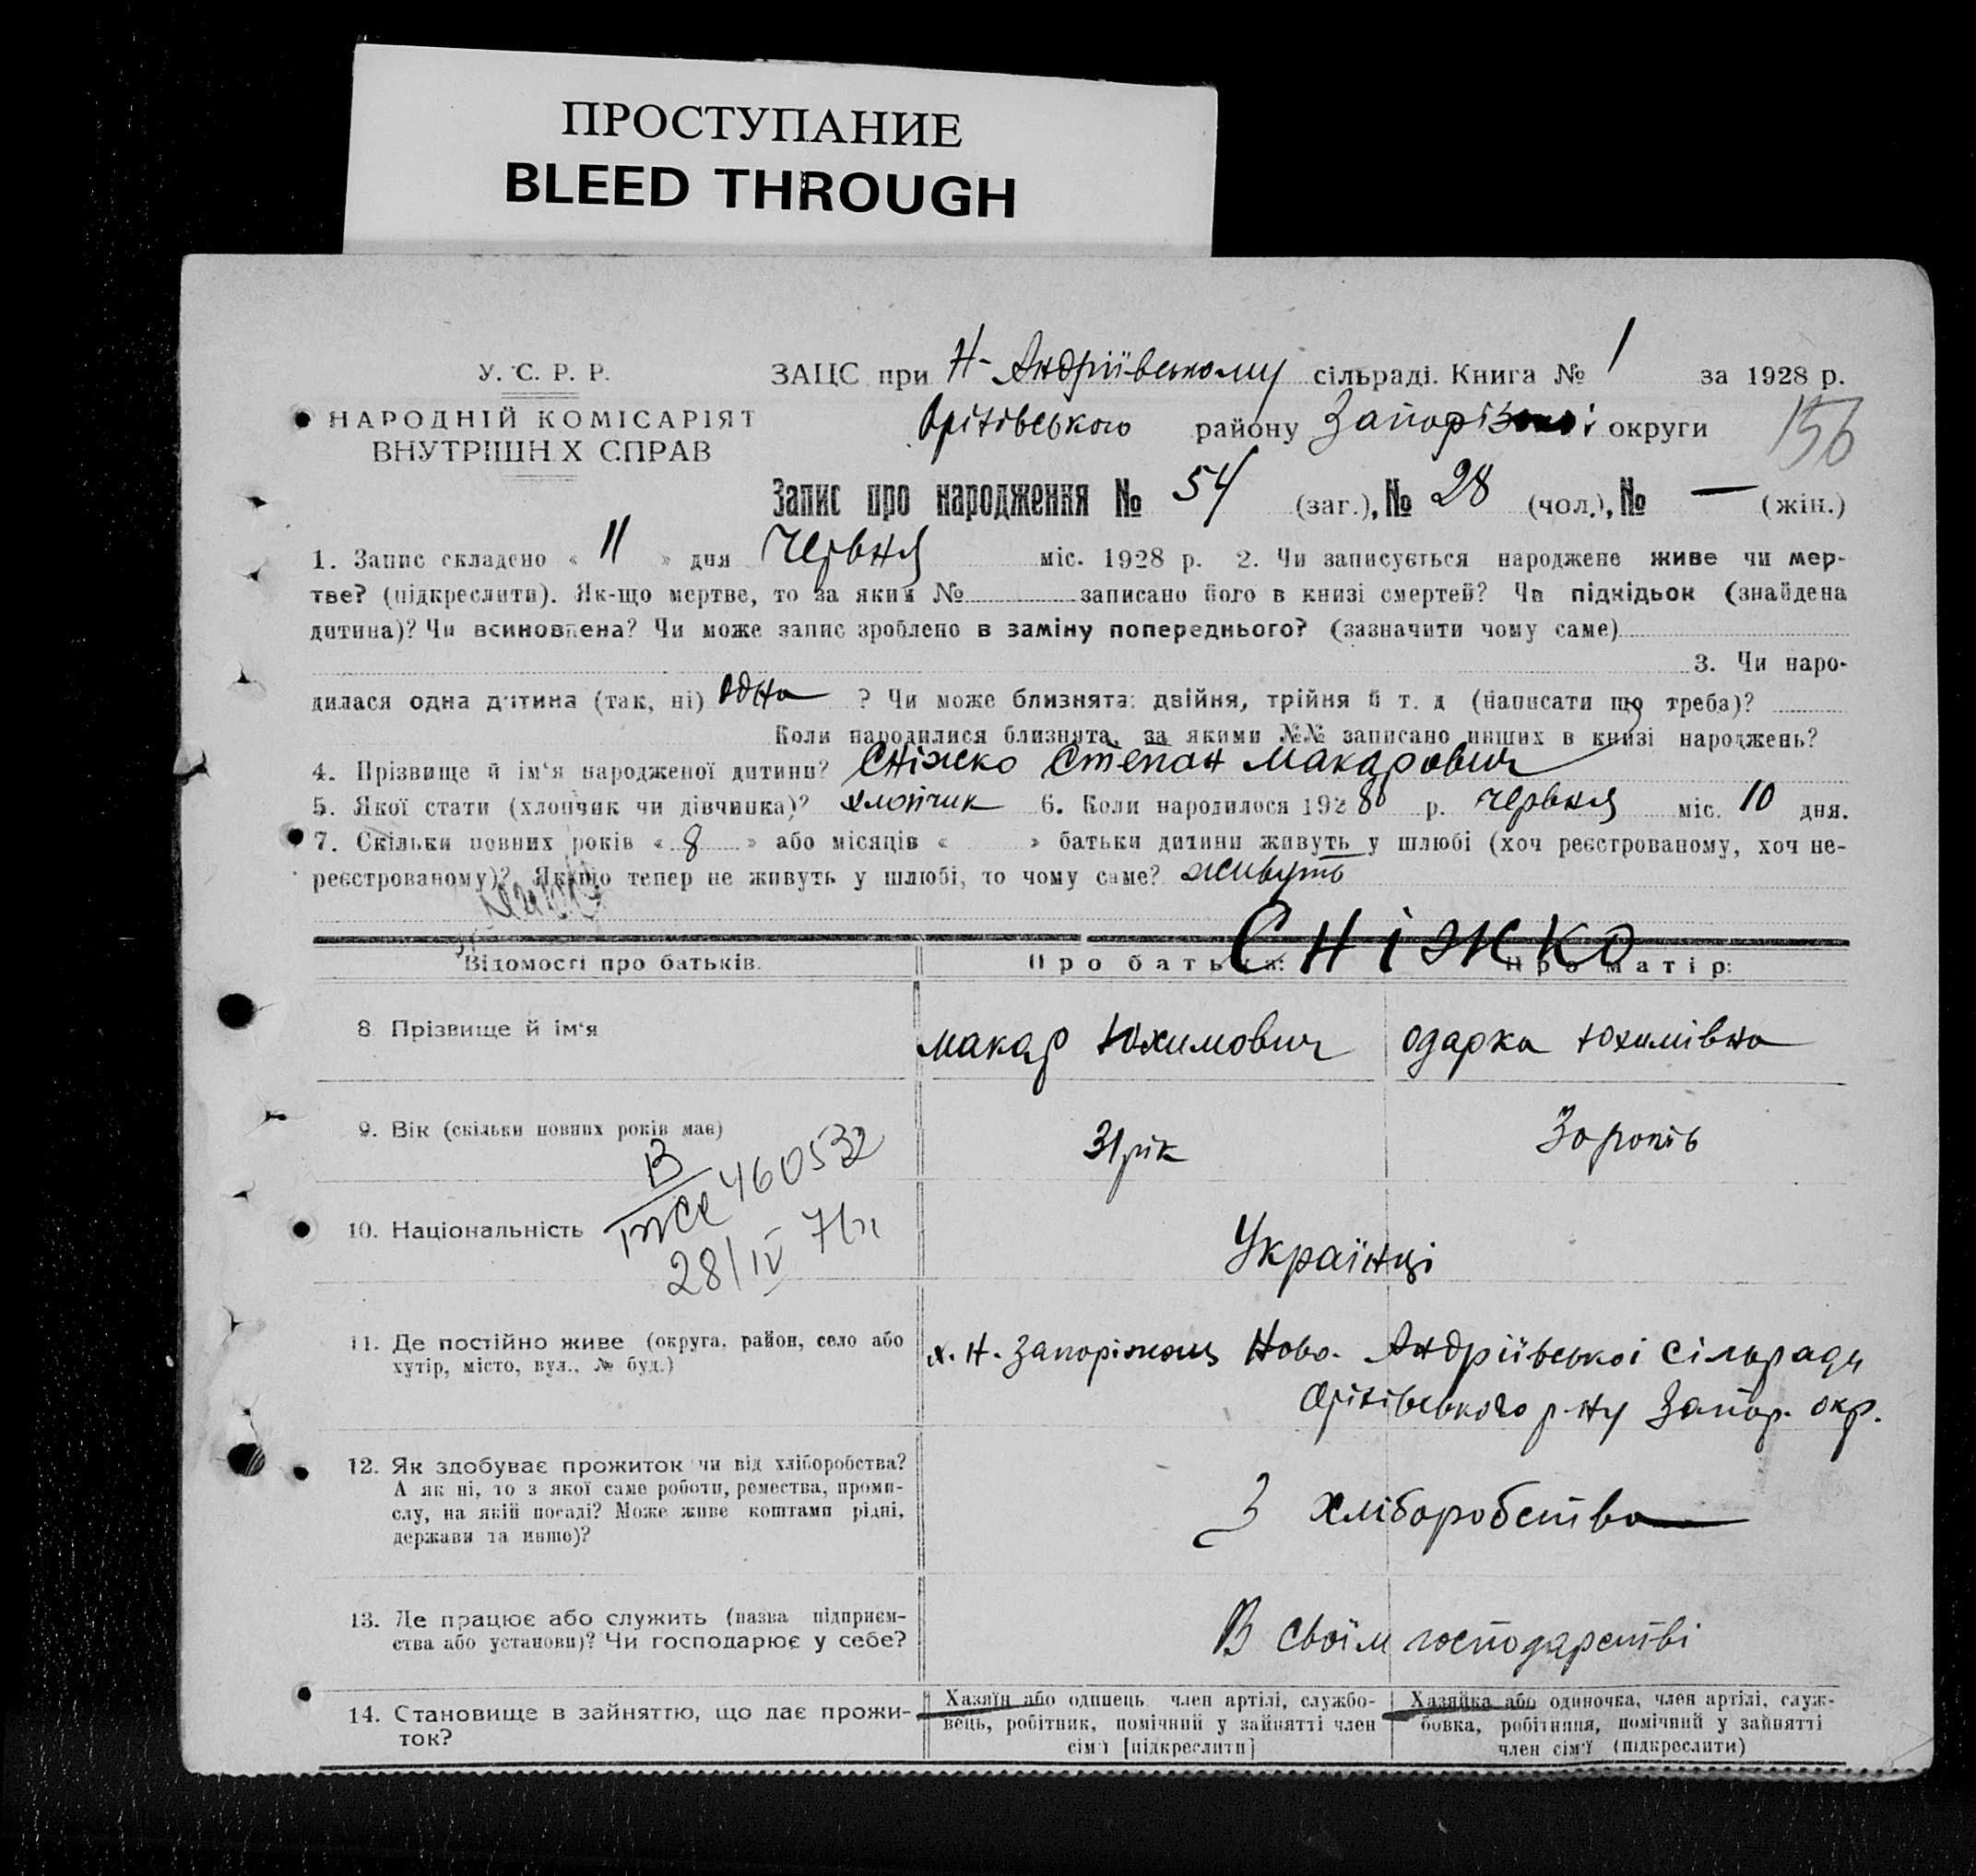 ПРОСТУПАНИЕ
BLEED THROUGH
У. С. Р. Р.
НАРОДНІЙ КОМІСАРІЯТ
ВНУТРІШН Х СПРАВ
ЗАЦС при Н-Андріївському сільраді. Книга № 1 за 1928 р.
Оріхівського району округи 156
Запис про народження № 54 (заг.), № 28 (чол.), № — (жін.)
1. Запис складено « 11 » дня Червня міс. 1928 р. 2. Чи записується народжене живе чи мер-
тве? (підкреслити). Як-що мертве, то за яким № записано його в книзі смертей? Чи підкідьок (знайдена
дитина)? Чи всиновлена? Чи може запис зроблено в заміну попереднього? (зазначити чому саме)
3. Чи наро-
дилася одна дитина (так, ні) одна ? Чи може близнята: двійня, трійня й т. д (написати що треба)?
Коли народилися близнята, за якими №№ записано инших в книзі народжень?
4. Прізвище й ім'я народженої дитини? Сніжко Степан Макарович
5. Якої стати (хлопчик чи дівчинка)? хлопчик 6. Коли народилося 1928 р. червня міс. 10 дня.
7. Скільки повних років « 8 » або місяців « » батьки дитини живуть у шлюбі (хоч реєстрованому, хоч не-
реєстрованому)? Якщо тепер не живуть у шлюбі, то чому саме? живуть
СНІЖКО
Відомості про батьків. Про батька: Про матір:
8. Прізвище й ім'я Макар Юхимович Одарка Юхимівна
9. Вік (скільки повних років має) 31 рік 30 років
В 460532
10. Національність Українці
28/IV 71
11. Де постійно живе (округа, район, село або
хутір, місто, вул., № буд.)
х. Н. Запоріжець Ново-Андріївської сільради
Оріхівського р-ну Запор. окр.
12. Як здобуває прожиток чи від хліборобства?
А як ні, то з якої саме роботи, ремества, проми-
слу, на якій посаді? Може живе коштами рідні,
держави та инше)?
З хліборобства
13. Де працює або служить (назва підприєм-
ства або установи)? Чи господарює у себе?
В своїм господарстві
14. Становище в зайняттю, що дає прожи-
ток?
Хазяїн або одинець член артілі, службо-
вець, робітник, помічний у зайнятті член
сім'ї [підкреслити]
Хазяйка або одиночка, член артілі, служ-
бовка, робітниця, помічний у зайнятті
член сім'ї (підкреслити)